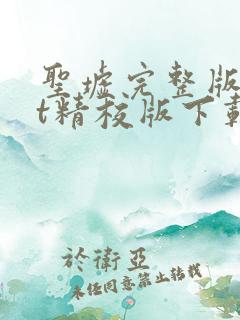 聖墟完整版
t精校版下載
於衛亞
未经同意禁止转载